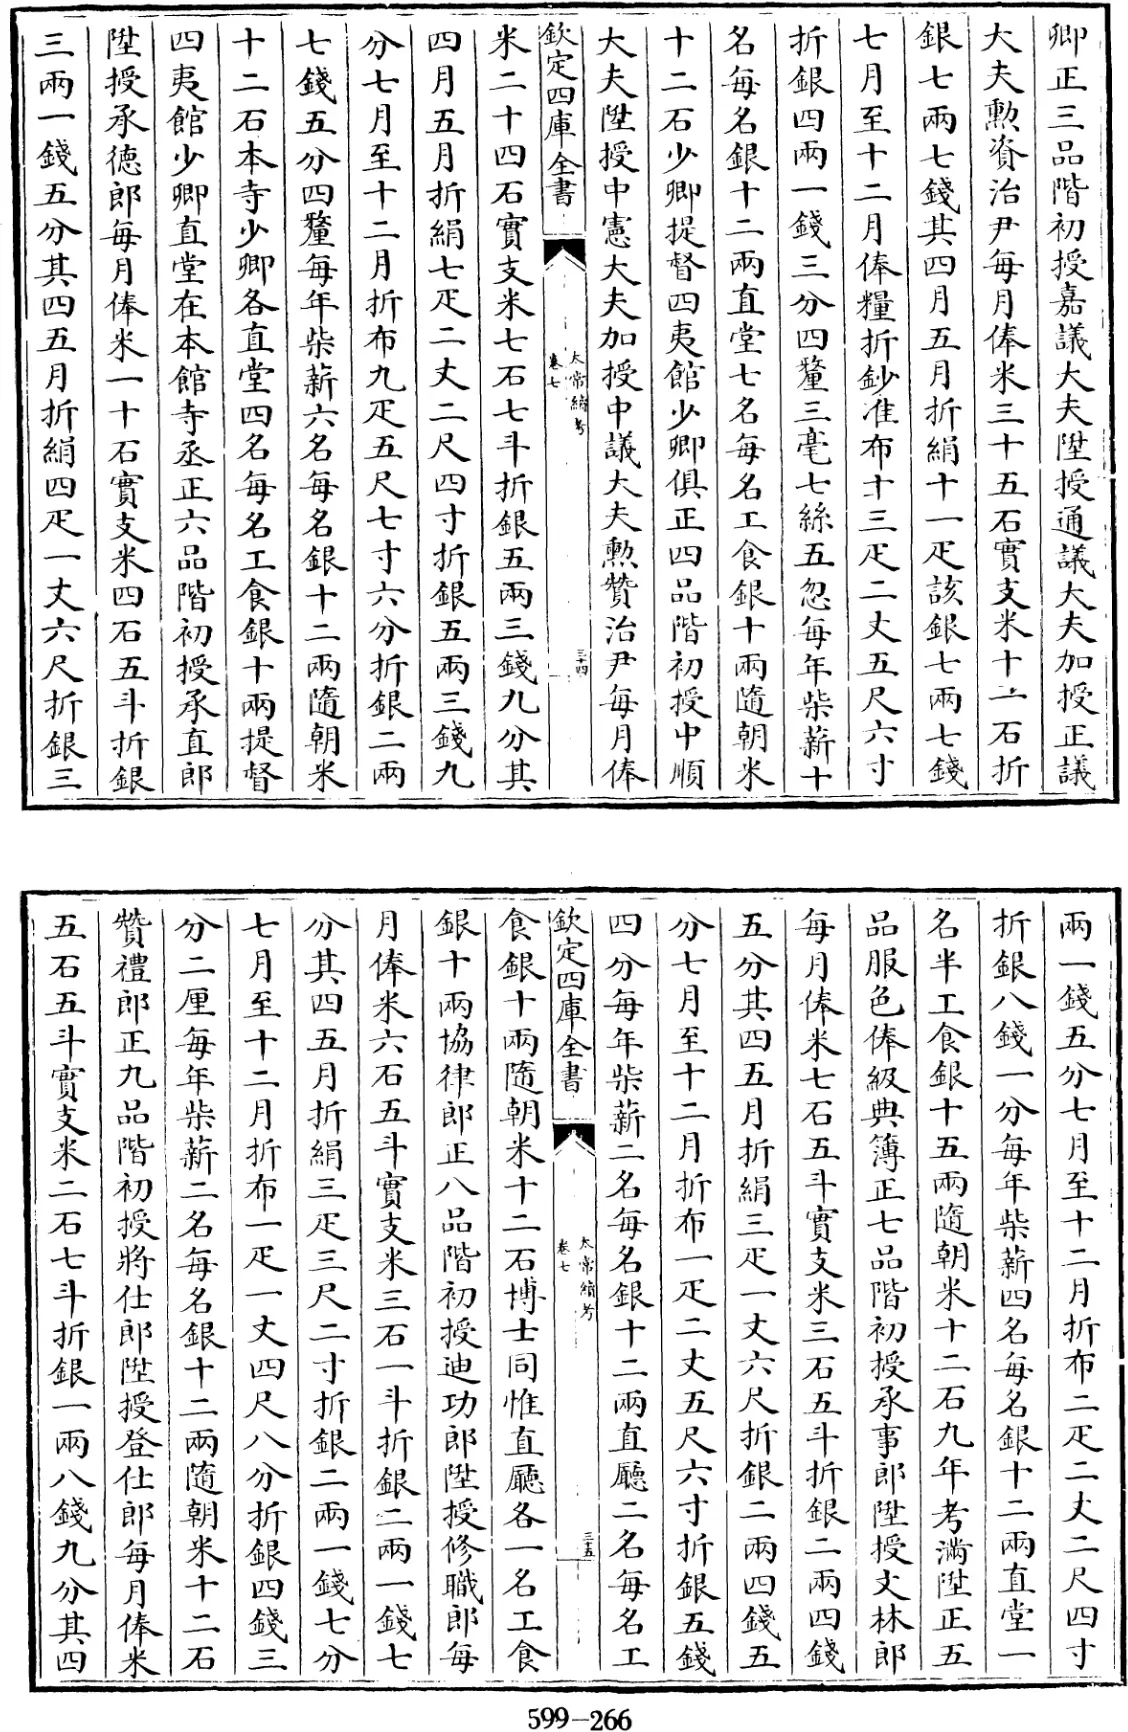 卿正三品階初授嘉議大夫陞授通議大夫加授正議
大夫勲資治尹每月俸米三十五石實支米十二石折
銀七兩七錢其四月五月折絹十一疋該銀七兩七錢
七月至十二月俸糧折鈔准布十三疋二丈五尺六寸
折銀四兩一錢三分四釐三毫七絲五忽每年柴薪十
名每名銀十二兩直堂七名每名工食銀十兩隨朝米
十二石少卿提督四夷館少卿俱正四品階初授中順
大夫陞授中憲大夫加授中議大夫勲贊治尹每月俸
欽定四庫全書
太常續考
卷七
三十四
米二十四石實支米七石七斗折銀五兩三錢九分其
四月五月折絹七疋二丈二尺四寸折銀五兩三錢九
分七月至十二月折布九疋五尺七寸六分折銀二兩
七錢五分四釐每年柴薪六名每名銀十二兩隨朝米
十二石本寺少卿各直堂四名每名工食銀十兩提督
四夷館少卿直堂在本館寺丞正六品階初授承直郎
陞授承德郎每月俸米一十石實支米四石五斗折銀
三兩一錢五分其四五月折絹四疋一丈六尺折銀三
兩一錢五分七月至十二月折布二疋二丈二尺四寸
折銀八錢一分每年柴薪四名每名銀十二兩直堂一
名半工食銀十五兩隨朝米十二石九年考滿陞正五
品服色俸級典簿正七品階初授承事郎陞授文林郎
每月俸米七石五斗實支米三石五斗折銀二兩四錢
五分其四五月折絹三疋一丈六尺折銀二兩四錢五
分七月至十二月折布一疋二丈五尺六寸折銀五錢
四分每年柴薪二名每名銀十二兩直廳二名每名工
欽定四庫全書
太常續考
卷七
三五
食銀十兩隨朝米十二石博士同惟直廳各一名工食
銀十兩協律郎正八品階初授迪功郎陞授修職郎每
月俸米六石五斗實支米三石一斗折銀二兩一錢七
分其四五月折絹三疋三尺二寸折銀二兩一錢七分
七月至十二月折布一疋一丈四尺八分折銀四錢三
分二厘每年柴薪二名每名銀十二兩隨朝米十二石
贊禮郎正九品階初授將仕郎陞授登仕郎每月俸米
五石五斗實支米二石七斗折銀一兩八錢九分其四
599-266